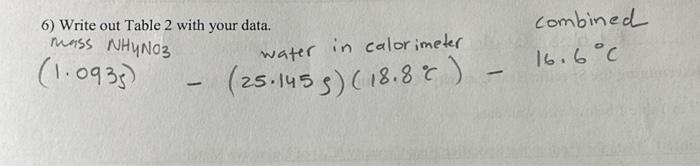 6) Write out Table 2 with your data.
combined
mass NHyNO3 water in calorimeter 16.6 °C
(1.093g) - (25.145 g) (18.8 °C) -